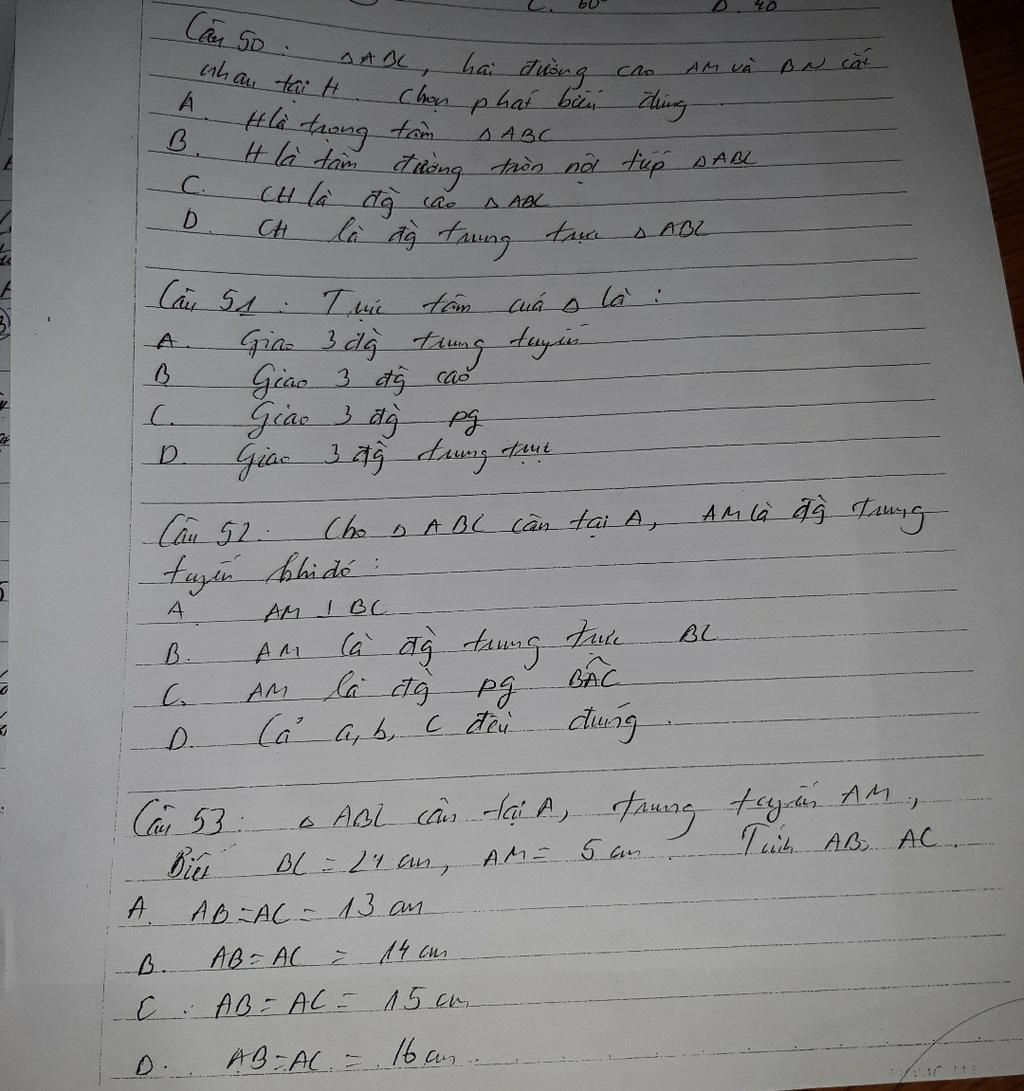 C. 60° D. 40
Câu 50. △ABC, hai đường cao AM và BN cắt
nhau tại H. Chọn phát biểu đúng
A. H là trọng tâm △ABC
B. H là tâm đường tròn nội tiếp △ABC
C. CH là đg̀ cao △ABC
D. CH là đg̀ trung trực △ABC
Câu 51: Trực tâm cuả △ là:
A. Giao 3 đg̀ trung tuyến
B Giao 3 đg̀ cao
C. Giao 3 đg̀ pg
D. Giao 3 đg̀ trung trực
Câu 52: Cho △ABC cân tại A, AM là đg̀ trung
tuyến khi đó:
A AM ⊥ BC
B. AM là đg̀ trung trực BC
C. AM là đg̀ pg BÂC
D. Cả a, b, c đều đúng.
Câu 53: △ABC cân tại A, trung tuyến AM,
Biết BC = 24 cm, AM = 5 cm. Tính AB, AC.
A. AB = AC = 13 cm
B. AB = AC = 14 cm
C. AB = AC = 15 cm
D. AB = AC = 16 cm.